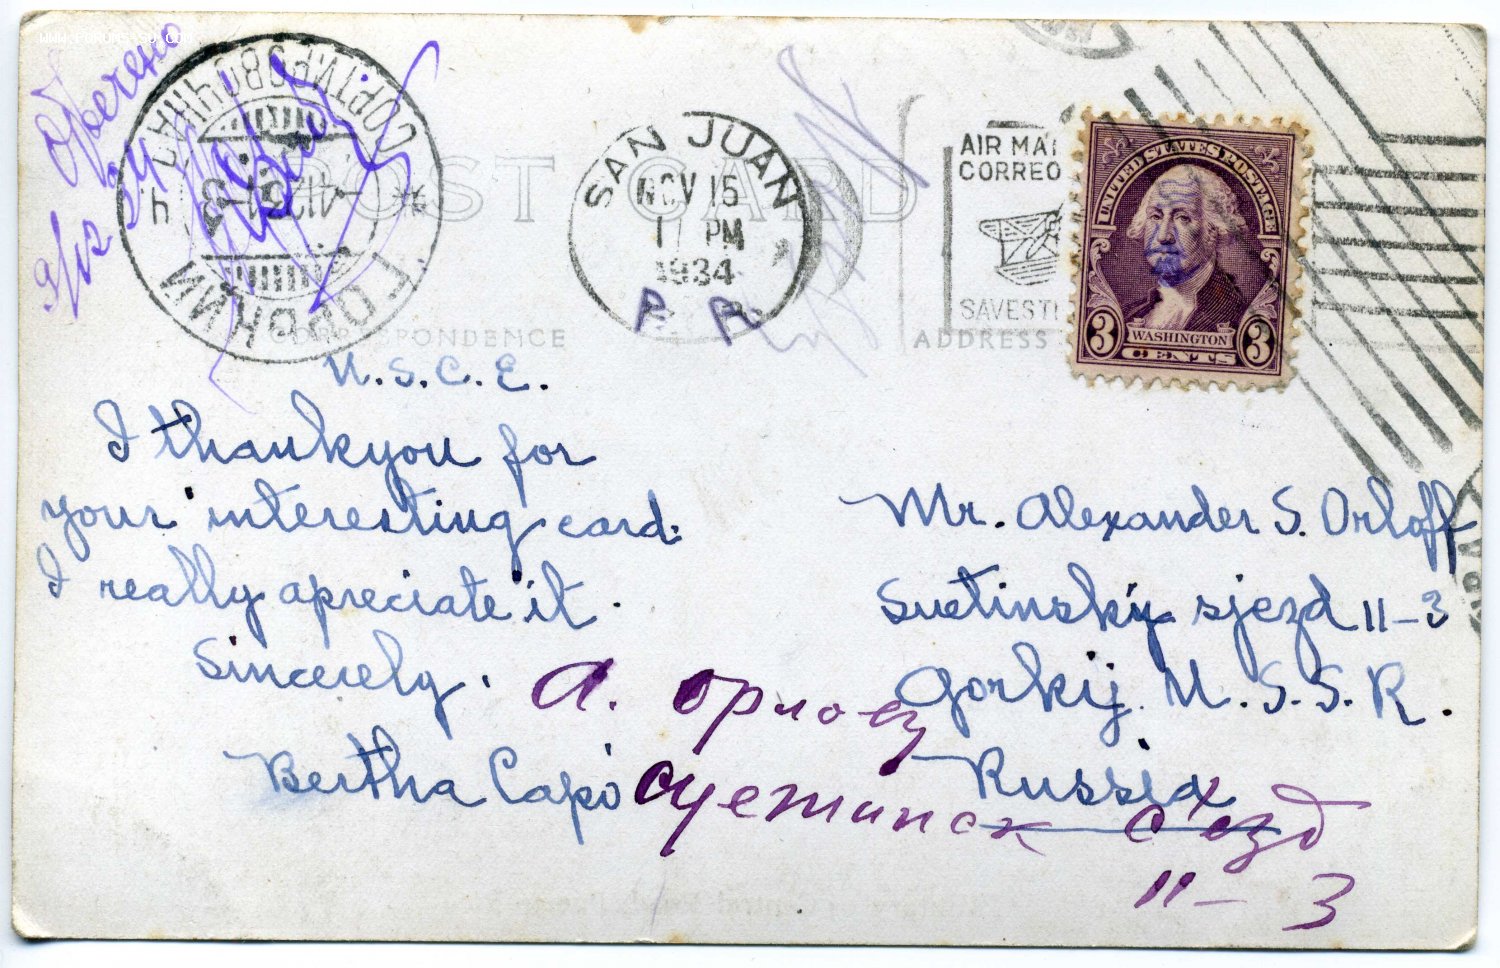 POST CARD
CORRESPONDENCE
ADDRESS
SAN JUAN
NOV 15
11 PM
1934
P. R.
AIR MAI
CORREO
SAVES TI
UNITED STATES POSTAGE
3 WASHINGTON 3
CENTS
ГОРЬКИЙ
4
U.S.C.E.
I thankyou for
your interesting card.
I really apreciate it.
Sincerely.
Bertha Capó
Mr. Alexander S. Orloff
Suetinský sjezd 11-3
Gorkij. U.S.S.R.
Russia
А. Орлову
Суетинск с'езд
11-3